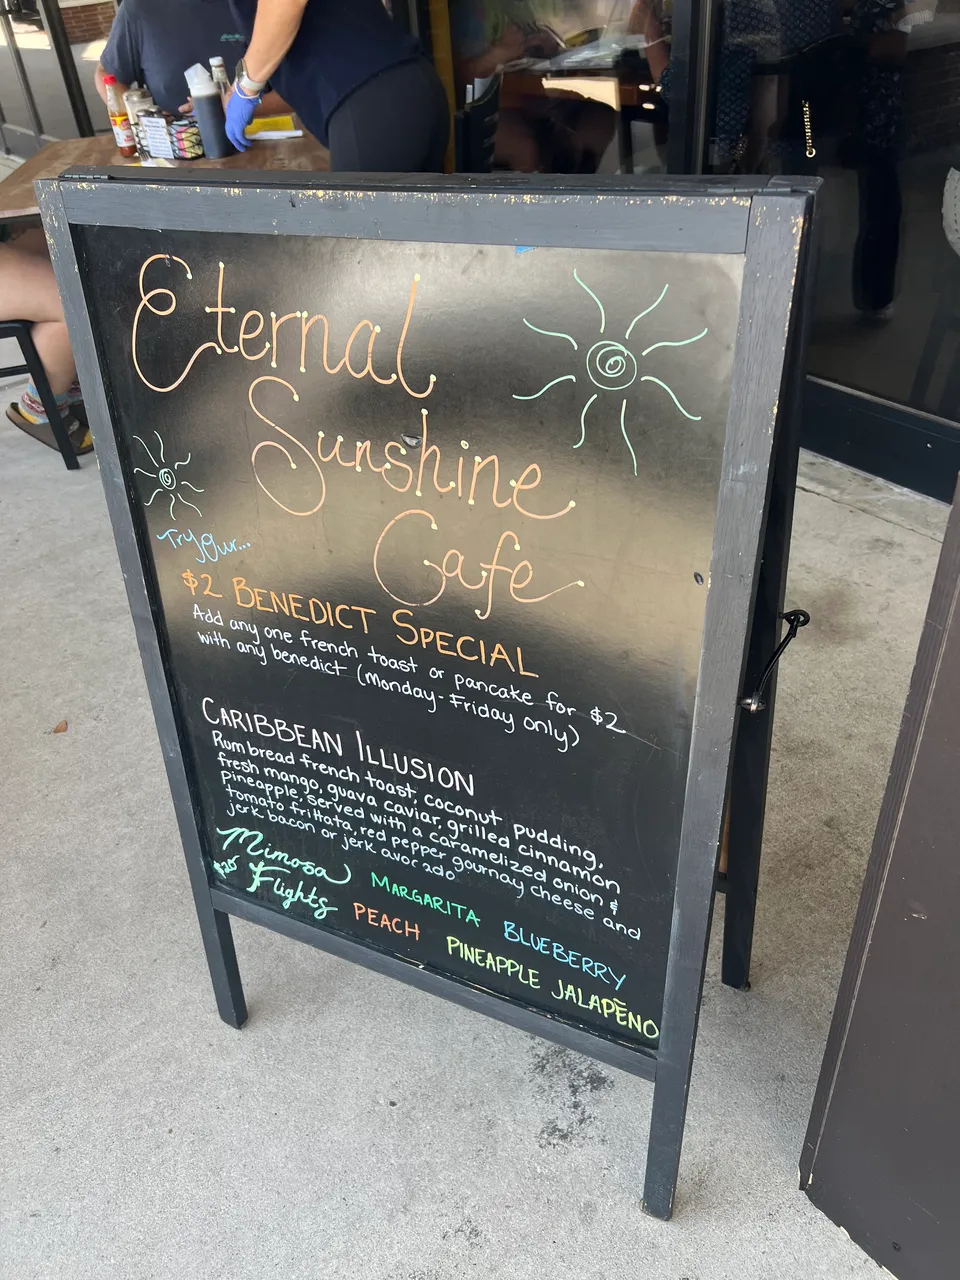 Eternal
Sunshine
Cafe
Try Our...
$2 BENEDICT SPECIAL
Add any one french toast or pancake for $2
with any benedict (Monday-Friday only)
CARIBBEAN ILLUSION
Rum bread french toast, coconut pudding,
fresh mango, guava caviar, grilled cinnamon
pineapple, served with a caramelized onion &
tomato frittata, red pepper gournay cheese and
jerk bacon or jerk avocado
Mimosa
Flights
MARGARITA BLUEBERRY
PEACH PINEAPPLE JALAPEÑO